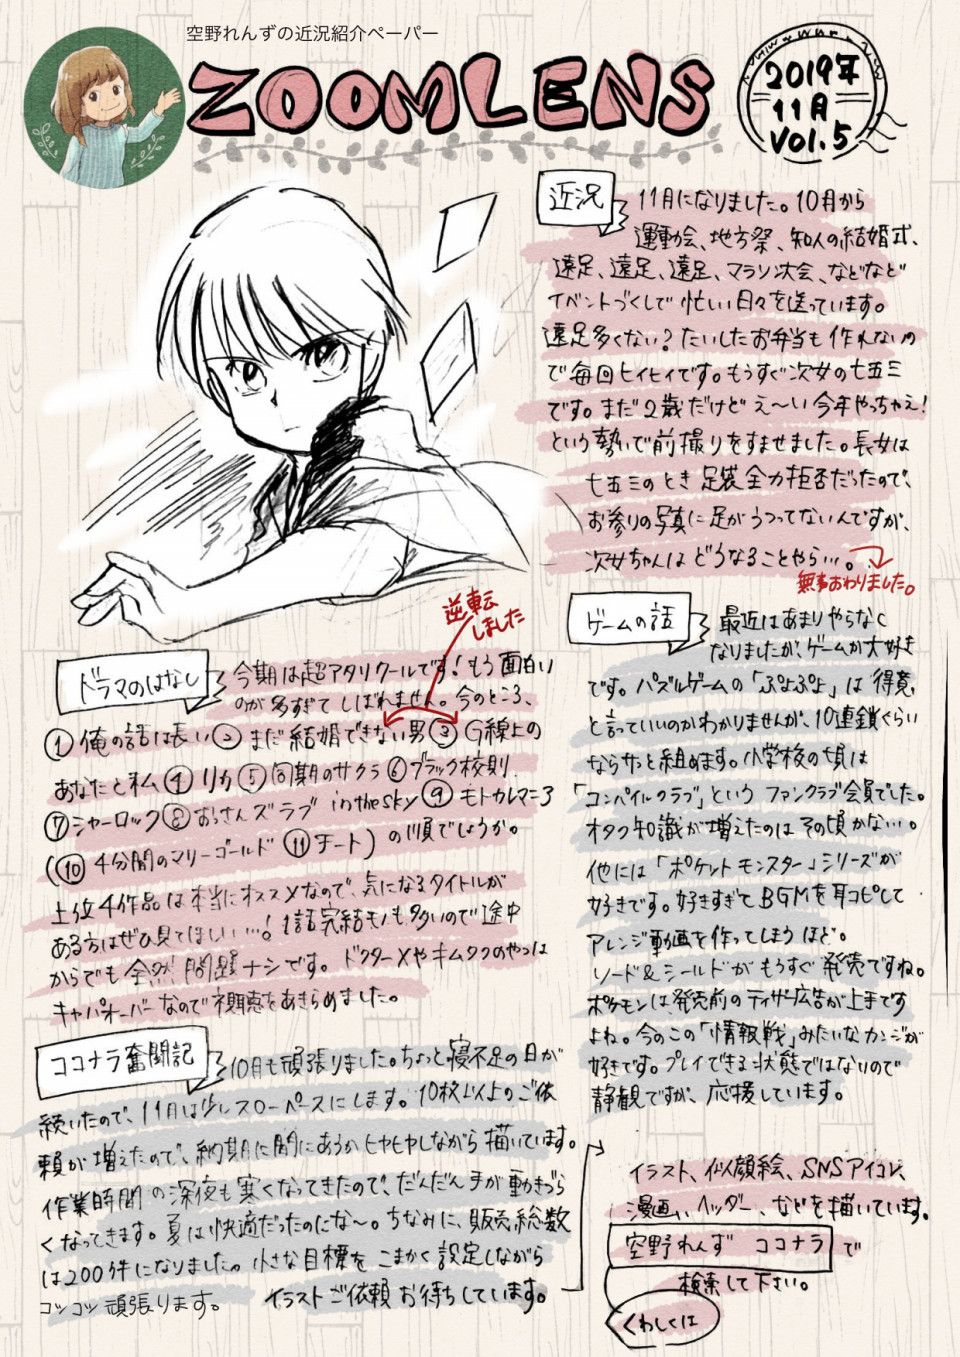 空野れんずの近況紹介ペーパー
ZOOMLENS
2019年
11月
Vol.5
近況
11月になりました。10月から
運動会、地方祭、知人の結婚式、
遠足、遠足、遠足、マラソン大会、などなど
イベントづくしで忙しい日々を送っています。
遠足多くない？たいしたお弁当も作れないの
で毎回ヒィヒィです。もうすぐ次女の七五三
です。まだ2歳だけどえ〜い今年やっちゃえ！
という勢いで前撮りをすませました。長女は
七五三のとき足袋全力拒否だったので、
お参りの写真に足がうつってないんですが、
次女ちゃんはどうなることやら…。
無事おわりました。
逆転
しました
ドラマのはなし
今期は超アタリクールです！もう面白い
のが多すぎてしばれません。今のところ、
①俺の話は長い②まだ結婚できない男③G線上の
あなたと私④リカ⑤同期のサクラ⑥ブラック校則
⑦シャーロック⑧おっさんズラブ in the sky⑨モトカレマニア
(⑩4分間のマリーゴールド⑪チート)の順でしょうか。
上位4作品は本当にオススメなので、気になるタイトルが
ある方はぜひ見てほしい…！1話完結モノも多いので途中
からでも全然問題ナシです。ドクターXやキムタクのやつは
キャパオーバーなので視聴をあきらめました。
ゲームの話
最近はあまりやらなく
なりましたが、ゲームが大好き
です。パズルゲームの「ぷよぷよ」は得意
と言っていいのかわかりませんが、10連鎖ぐらい
ならサッと組めます。小学校の頃は
「コンパイルクラブ」というファンクラブ会員でした。
オタク知識が増えたのはその頃かな…。
他には「ポケットモンスター」シリーズが
好きです。好きすぎてBGMを耳コピして
アレンジ動画を作ってしまうほど。
ソード&シールドがもうすぐ発売ですね。
ポケモンは、発売前のティザー広告が上手です
よね。今のこの「情報戦」みたいなカンジが
好きです。プレイできる状態ではないので
静観ですが、応援しています。
ココナラ奮闘記
10月も頑張りました。ちょっと寝不足の日が
続いたので、11月は少しスローペースにします。10枚以上のご依
頼が増えたので、納期に間にあうかヒヤヒヤしながら描いています。
作業時間の深夜も寒くなってきたので、だんだん手が動きづら
くなってきます。夏は快適だったのにな〜。ちなみに、販売総数
は200件になりました。小さな目標をこまかく設定しながら
コツコツ頑張ります。 イラストご依頼お待ちしています。
イラスト、似顔絵、SNSアイコン、
漫画、ヘッダー、などを描いています。
空野れんず ココナラで
検索して下さい。
くわしくは